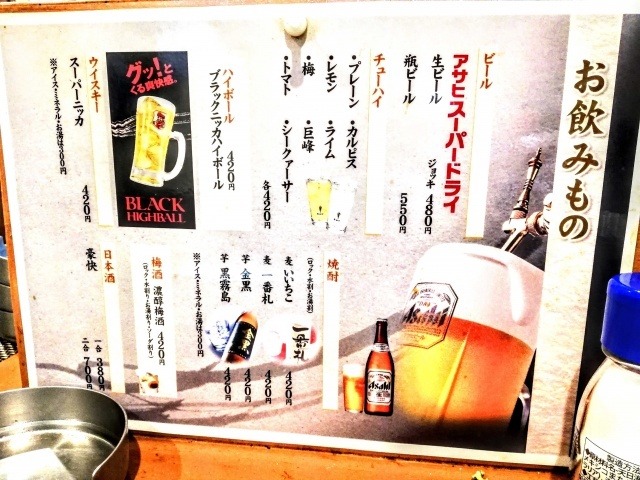 お飲みもの
ビール
アサヒスーパードライ
生ビール ジョッキ 480円
瓶ビール 550円
チューハイ
・プレーン ・カルピス
・レモン ・ライム
・梅 ・巨峰
・トマト ・シークァーサー
各420円
ハイボール
ブラックニッカハイボール 420円
グッ!と
くる爽快感。
BLACK
HIGHBALL
ウイスキー
スーパーニッカ 420円
※アイス・ミネラル・お湯は300円
焼酎
(ロック・水割・お湯割)
麦 いいちこ 420円
麦 一番札 420円
芋 金黒 420円
芋 黒霧島 420円
※アイス・ミネラル・お湯は300円
一番札
金黒
梅酒 濃醇梅酒 420円
(ロック・水割り・お湯割り・ソーダ割り)
日本酒
豪快 一合 380円
二合 700円
Asahi
Asahi
製造方法